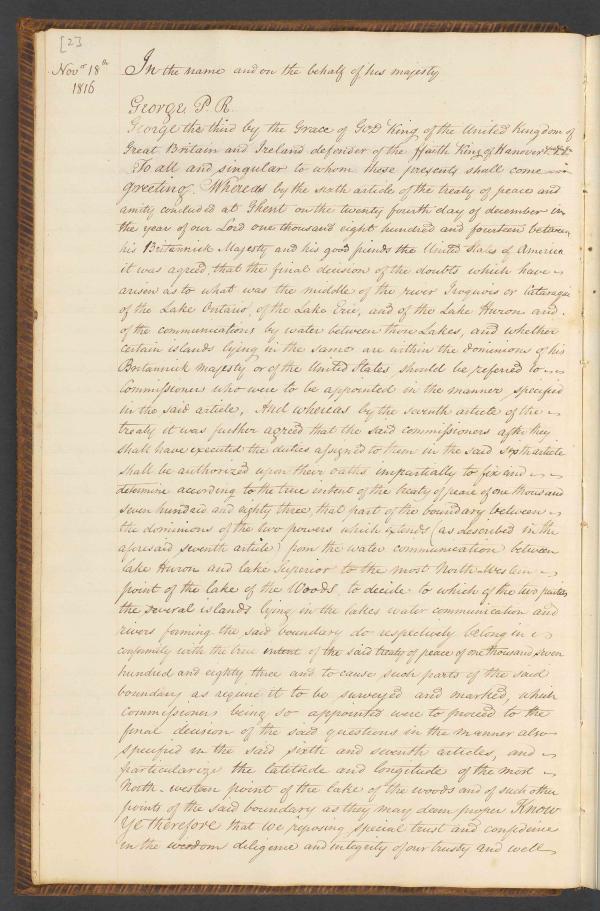 [2]
Novr 18th
1816
In the name and on the behalf of his majesty
George P. R.
George the third by the Grace of God King of the United Kingdom of
Great Britain and Ireland defender of the ffaith King of Hanover &c &c
To all and singular to whom these presents shall come
greeting. Whereas by the sixth article of the treaty of peace and
amity concluded at Ghent on the twenty fourth day of december in
the year of our Lord one thousand eight hundred and fourteen between
his Britannick Majesty and his good friends the United States of America
it was agreed, that the final decision of the doubts which have
arisen as to what was the middle of the river Iroquois or Cataraguy
of the Lake Ontario, of the Lake Erie, and of the Lake Huron and
of the communications by water between those Lakes, and whether
certain islands lying in the same are within the dominions of his
Britannick majesty or of the United States should be referred to
Commissioners who were to be appointed in the manner specified
in the said article, And whereas by the seventh article of the
treaty it was further agreed that the said commissioners after they
shall have executed the duties assigned to them in the said sixth article
shall be authorized upon their oaths impartially to fix and
determine according to the true intent of the treaty of peace of one thousand
seven hundred and eighty three, that part of the boundary between
the dominions of the two powers which extends (as described in the
aforesaid seventh article) from the water communication between
lake Huron and lake Superior to the most North-Western
point of the lake of the Woods, to decide to which of the two parties
the several islands lying in the lakes water communication and
rivers forming the said boundary do respectively belong in
conformity with the true intent of the said treaty of peace of one thousand seven
hundred and eighty three and to cause such parts of the said
boundary as require it to be surveyed and marked, which
commissioners being so appointed were to proceed to the
final decision of the said questions in the manner also
specified in the said sixth and seventh articles, and
particularize the latitude and longitude of the most
North-western point of the lake of the woods and of such other
points of the said boundary as they may deem proper Know
Ye therefore that we reposing special trust and confidence
in the wisdom diligence and integrity of our trusty and well